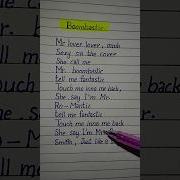 Boombastic
Mr lover lover, mmh
Sexy on the cover
She call me
Mr. boombastic
tell me fantastic
Touch me inna me back,
She say I'm Mr.
Ro-Mantic
tell me fantastic
Touch me inna me back
She say I'm Mr
Smith, Just like a